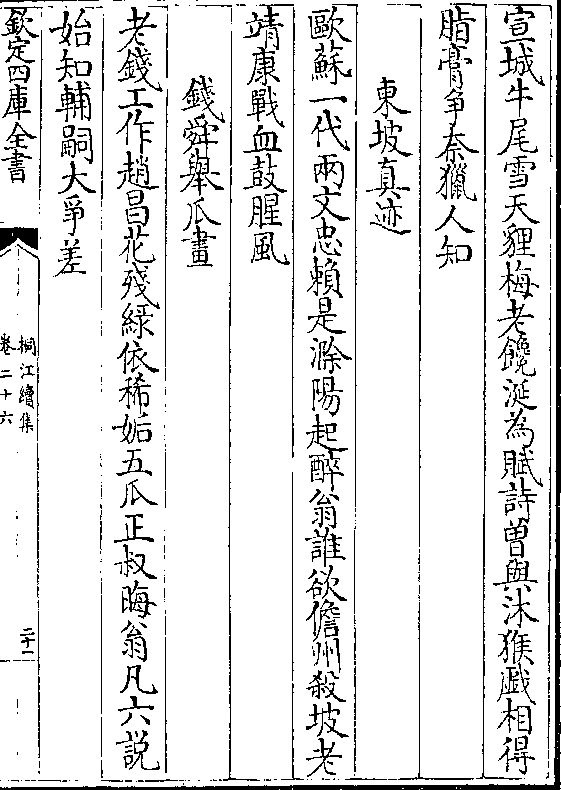 宣城牛尾雪天貍梅老饞涎為賦詩曽與沐猴戯相得
脂膏争奈獵人知
東坡真迹
歐蘇一代兩文忠賴是滁陽起醉翁誰欲儋州殺坡老
靖康戰血鼓腥風
錢舜舉瓜畫
老錢工作趙昌花殘緑依稀姤五瓜正叔晦翁凡六説
始知輔嗣大爭差
欽定四庫全書
桐江續集
卷二十六
二十一